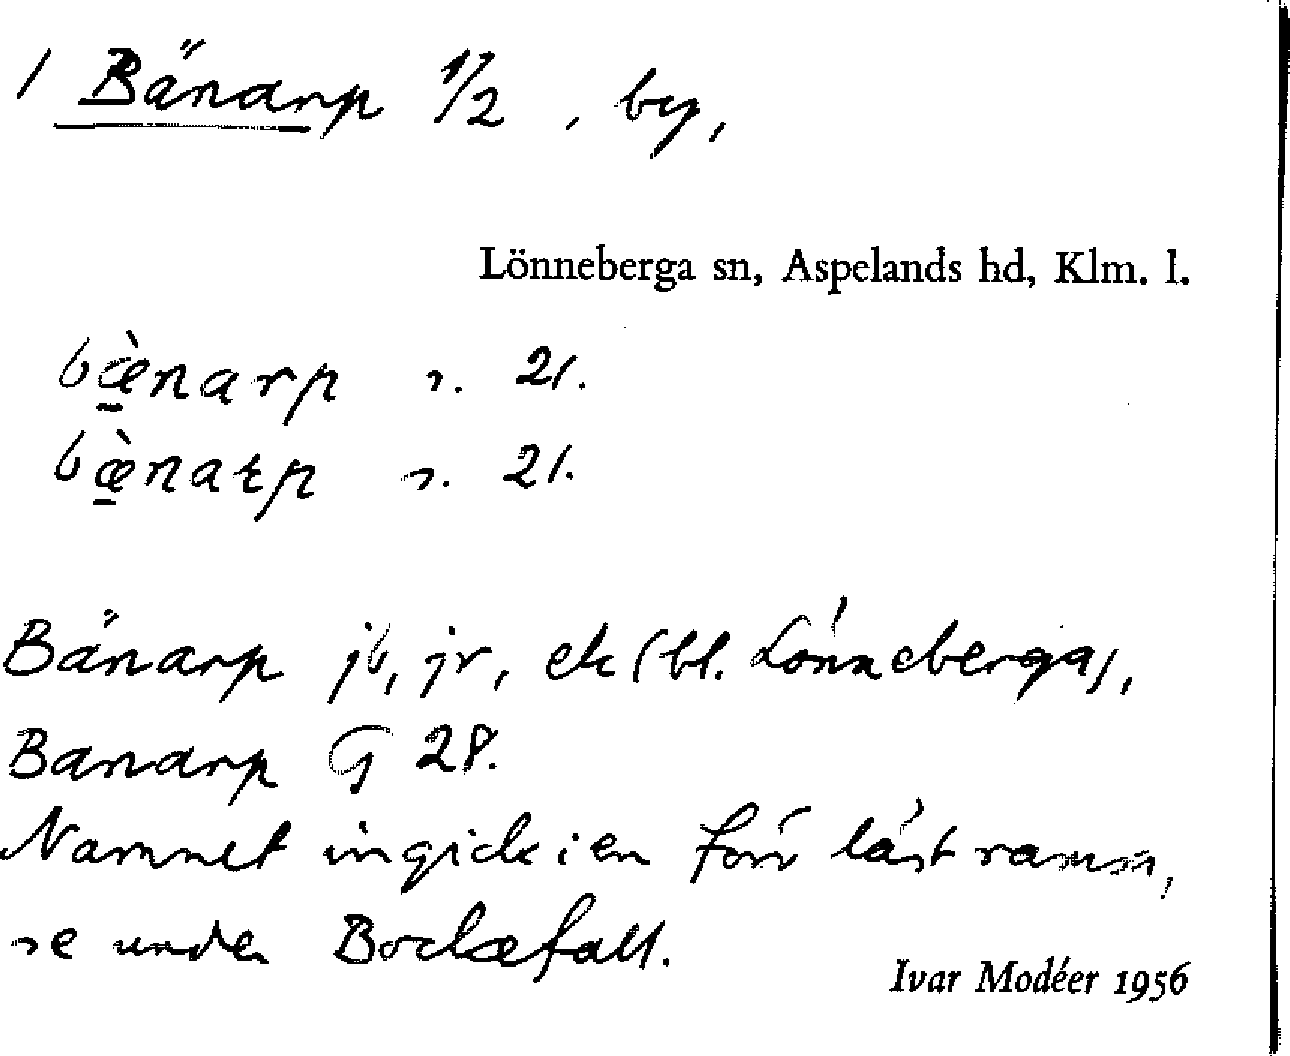 1 Bänarp 1/2, by,
Lönneberga sn, Aspelands hd, Klm. l.
bæ̠̀narp s. 21.
bæ̠̀natp s. 21.
Bänarp jb, jr, ek (bl. Lönneberga),
Banarp G 28.
Namnet ingick i en förr läst ramsa,
se under Bockefall.
Ivar Modéer 1956